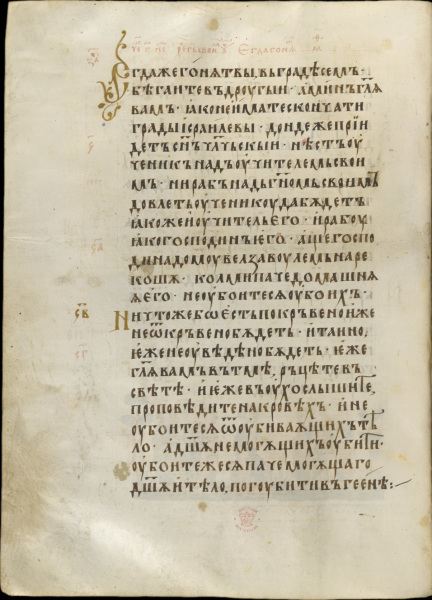 Егдажегонѧтвы, выградѣсемъ·
бѣгаитевъдроугыи· аминъгл҃ѧ
вамъ· ꙗконеиматескончати
градыисраилевы· дондежепрїи
детъсн҃ъчл҃чьскыи· нѣстъоу
ченикънадъоучителемьсвои
мъ· нирабънадъгн҃омьсвоимъ
довлетъоученикоудабѫдетъ
ꙗкожеиоучительего· ирабоу
ꙗкогосподинъего· ащегоспо
динадомоувелзавоулемьнаре
кошѧ· колмипачедомашнѧ
ѧего· неоубоитесѧоубоихъ·
св
Ничтожебоестьпокръвеноиже
неѿкръвенобѫдетъ· итаино,
иженеоувѣдѣнобѫдетъ· иже
гл҃ѧвамъвътмѣ, рьцѣтевъ
свѣтѣ· иежевъоухослышите,
проповѣдитенакровѣхъ· ине
оубоитесѧѿоубиваѧщихътѣ
ло· адш҃ѧнемогѧщихъоубити·
оубоитежесѧпачемогѧщаго
дш҃ѧитѣло, погоубитивъгеенѣ:~